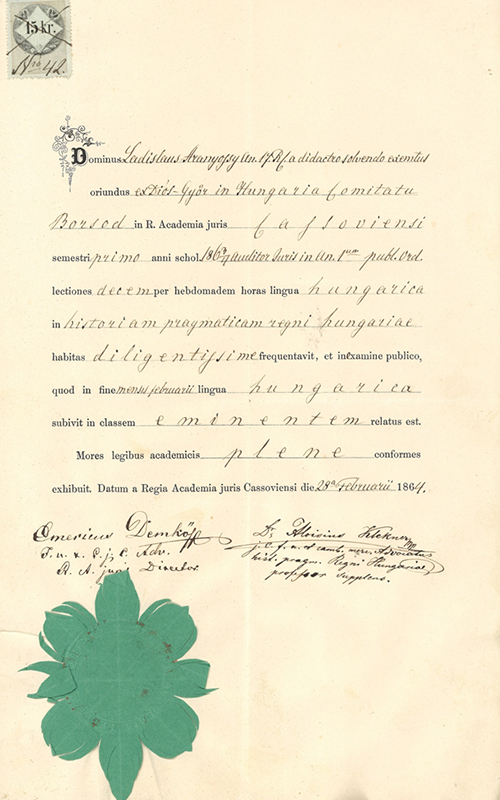 15 kr.
Nro 42.
Dominus Ladislaus Aranyossy An. 17. R. f. a didactro solvendo exemtus
oriundus ex Diós-Györ in Hungaria Comitatu
Borsod in R. Academia juris Cassoviensi
semestri primo anni schol. 1863/4 auditor Juris in An. 1um publ. Ord.
lectiones decem per hebdomadem horas lingua hungarica
in historiam pragmaticam regni hungariae
habitas diligentissime frequentavit, et in examine publico,
quod in fine mensis februarii lingua hungarica
subivit in classem eminentem relatus est.
Mores legibus academicis plene conformes
exhibuit. Datum a Regia Academia juris Cassoviensi die 28a Februarii 1864.
Emericus Demkó
J. u. & C. j. C. Adv.
R. A. juris Director
Dr. Aloisius Klekner
J. C. f. u. et camb. merc. Advocatus
hist. pragm. Regni Hungariae
professor supplens.